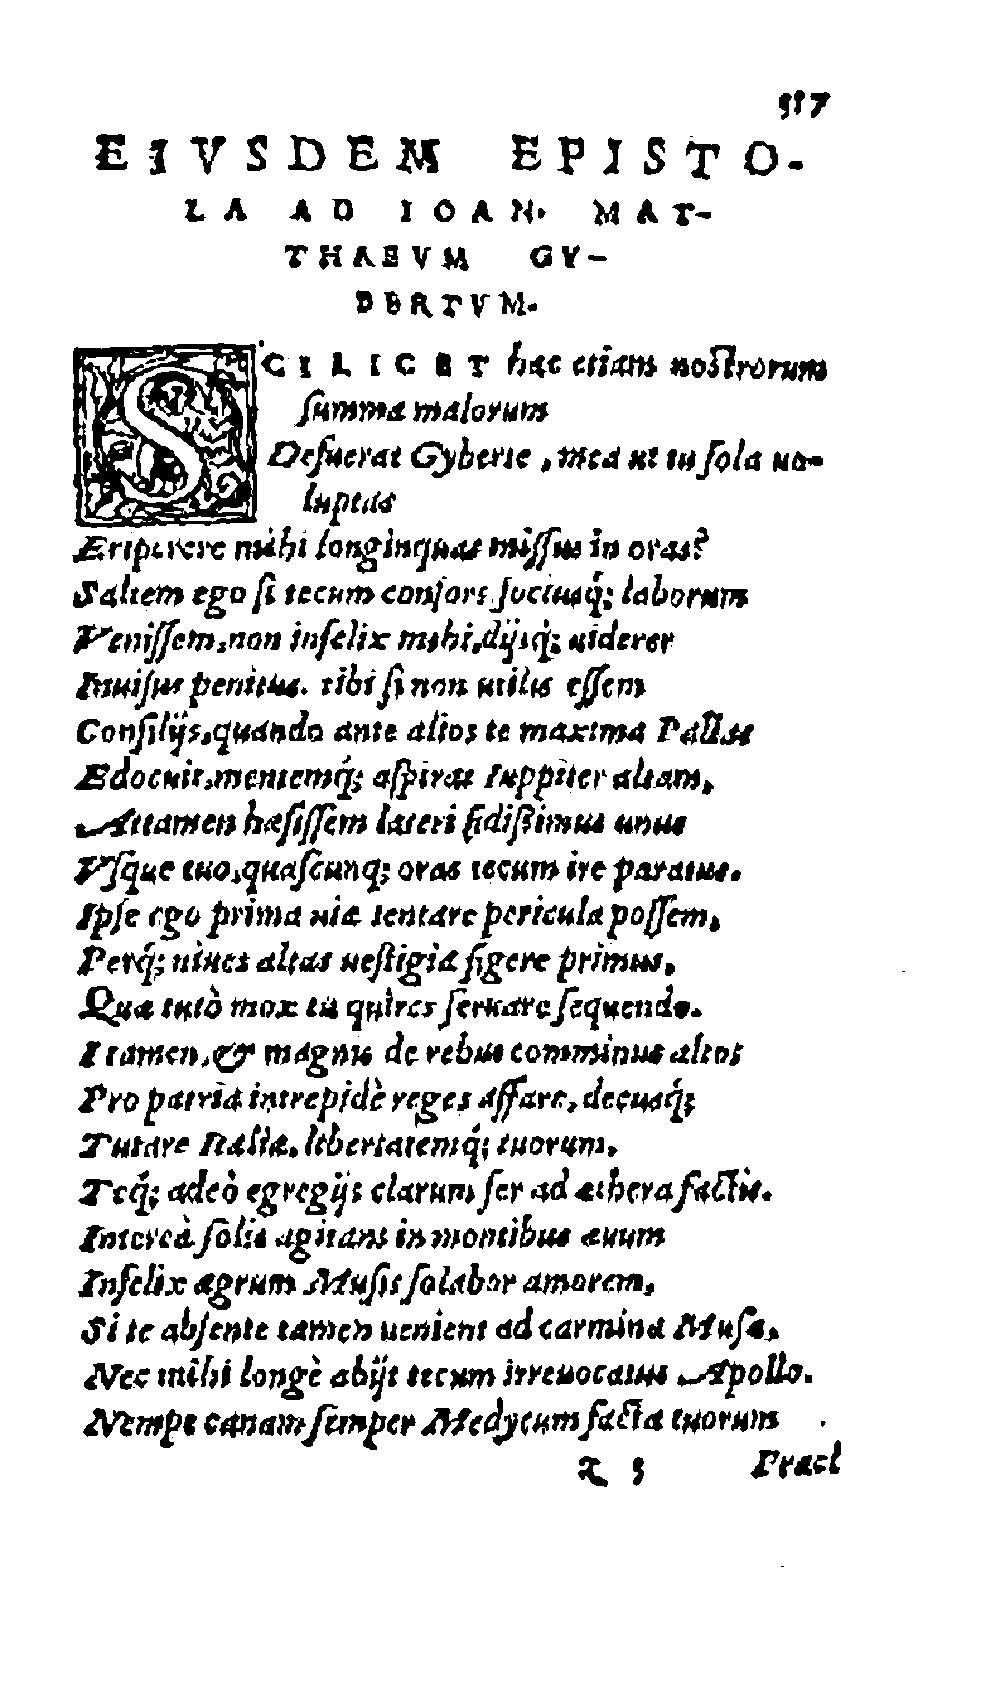 517
EIVSDEM EPISTO-
LA AD IOAN. MAT-
THAEVM GY-
BERTVM.
SCILICET hæc etiam noſtrorum
ſumma malorum
Defuerat Gyberte, mea ut tu ſola uo-
luptas
Eriperere mihi longinquas miſſus in oras?
Saltem ego ſi tecum conſors ſociusq́; laborum
Veniſſem, non infelix mihi, dijsq́; uiderer
Inuiſus penitus. tibi ſi non utilis eſſem
Conſilijs, quando ante alios te maxima Pallas
Edocuit, mentemq́; aſpirat Iuppiter altam,
Attamen hæſiſſem lateri fidißimus unus
Vſque tuo, quaſcunq; oras tecum ire paratus.
Ipſe ego prima uiæ tentare pericula poſſem,
Perq́; niues altas ueſtigia figere primus,
Quæ tutò mox tu quires ſeruare ſequendo.
I tamen, & magnis de rebus comminus altos
Pro patria intrepidè reges affare, decusq́;
Tutare Italiæ, libertatemq́; tuorum,
Teq́; adeò egregijs clarum fer ad æthera factis.
Intereà ſolis agitans in montibus æuum
Infelix ægrum Muſis ſolabor amorem,
Si te abſente tamen uenient ad carmina Muſæ,
Nec mihi longè abijt tecum irreuocatus Apollo.
Nempe canam ſemper Medycum facta tuorum
5 Præcl